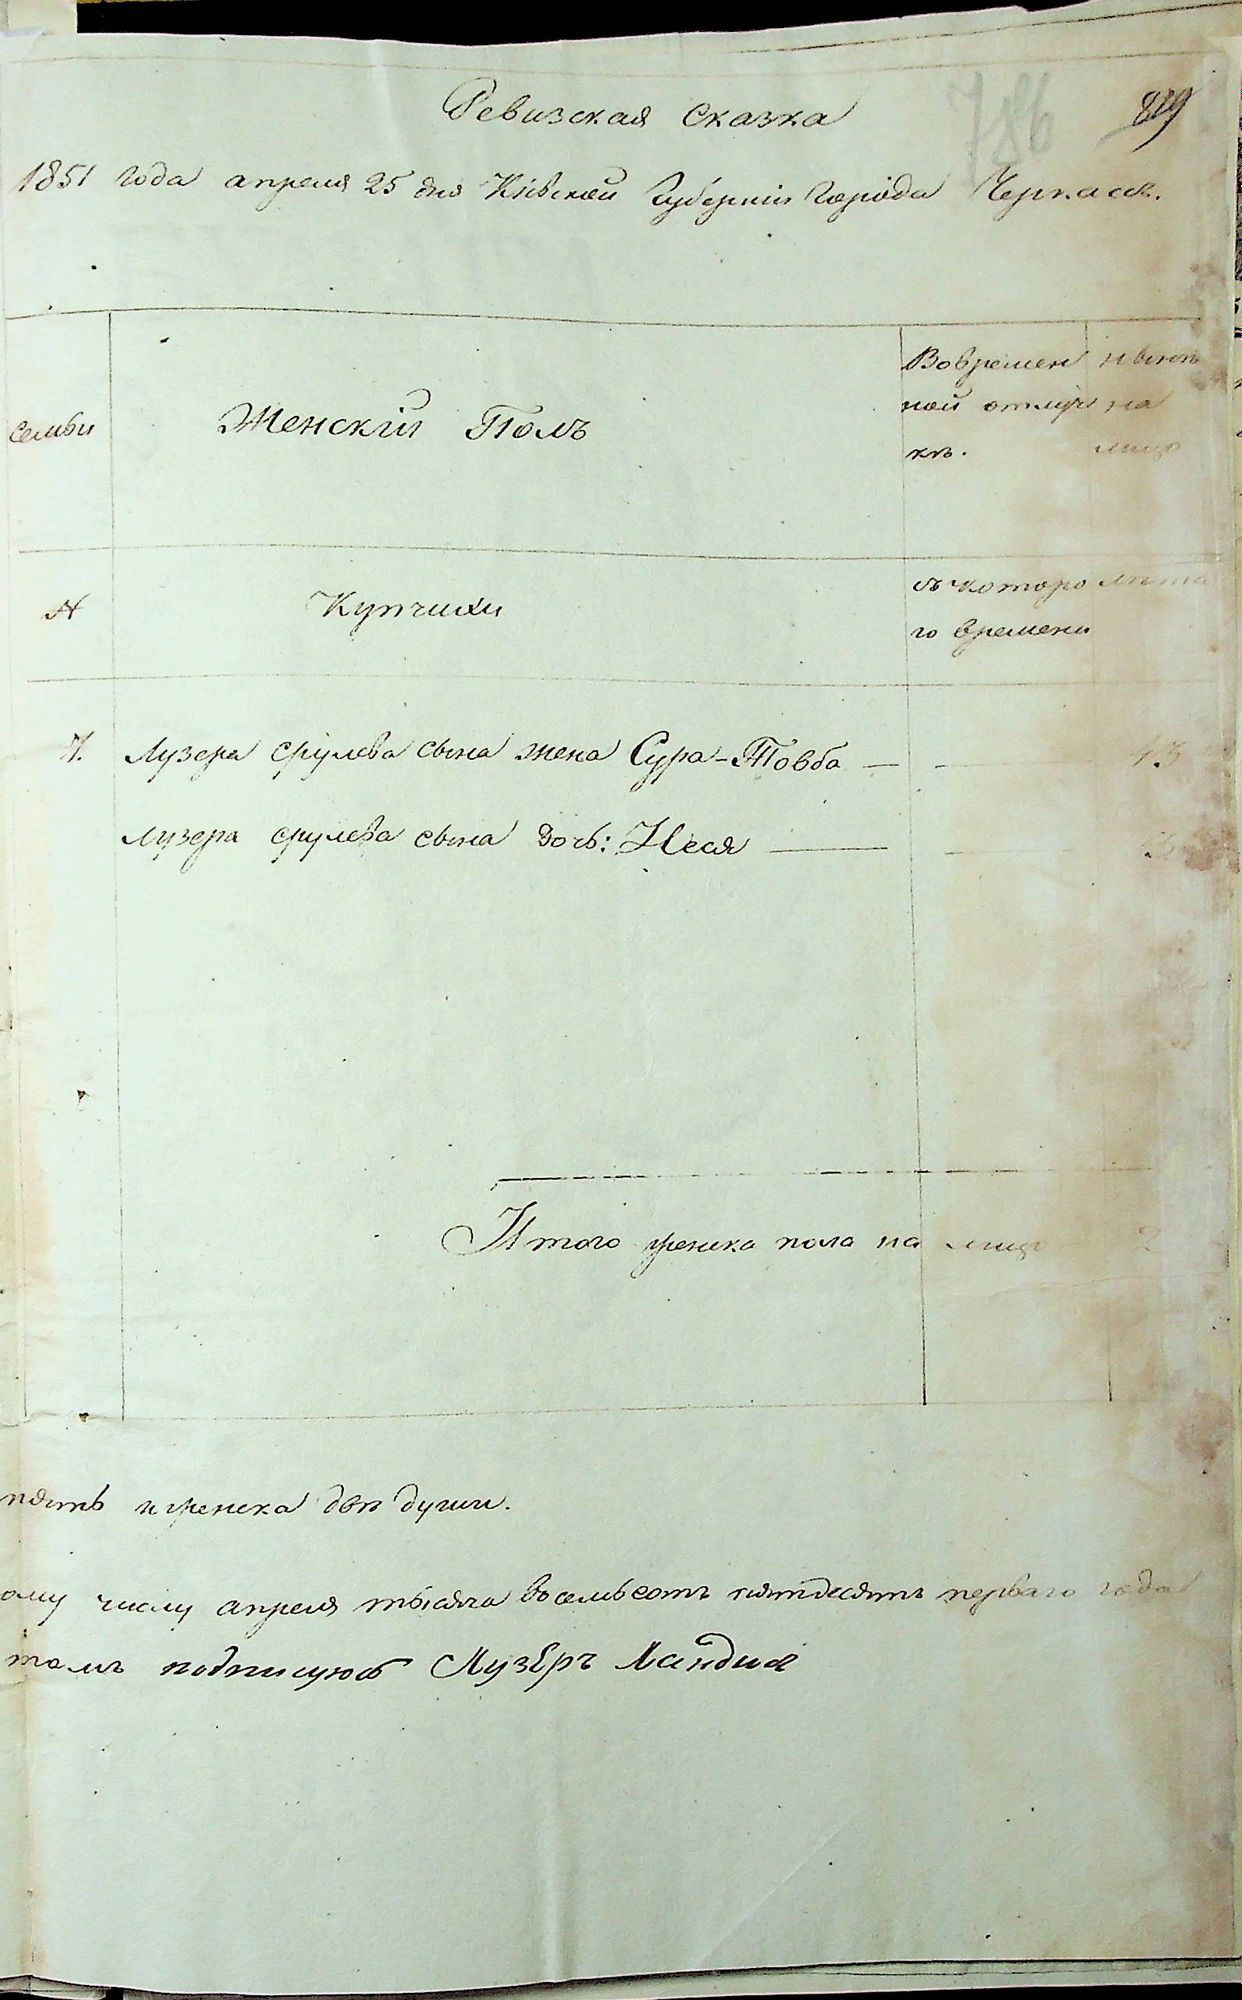 Ревизская Сказка
786
1851 года апреля 25 дня Кіевской Губерніи Города Черкасъ.
семьи
Женскій Полъ
Во времен
ной отлуч
кѣ.
нынѣ
на
лицо
№
Купчихи
съ которо
го времени
лѣта
1. Лузера Срулева сына жена Сура-Товба — — 43
Лузера Срулева сына дочь: Неся — — 3
Итого женска пола на лицо 2
пять и женска двѣ души.
ому числу апреля тысяча восемьсотъ пятдесятъ перваго года
томъ подписуюсь Лузеръ